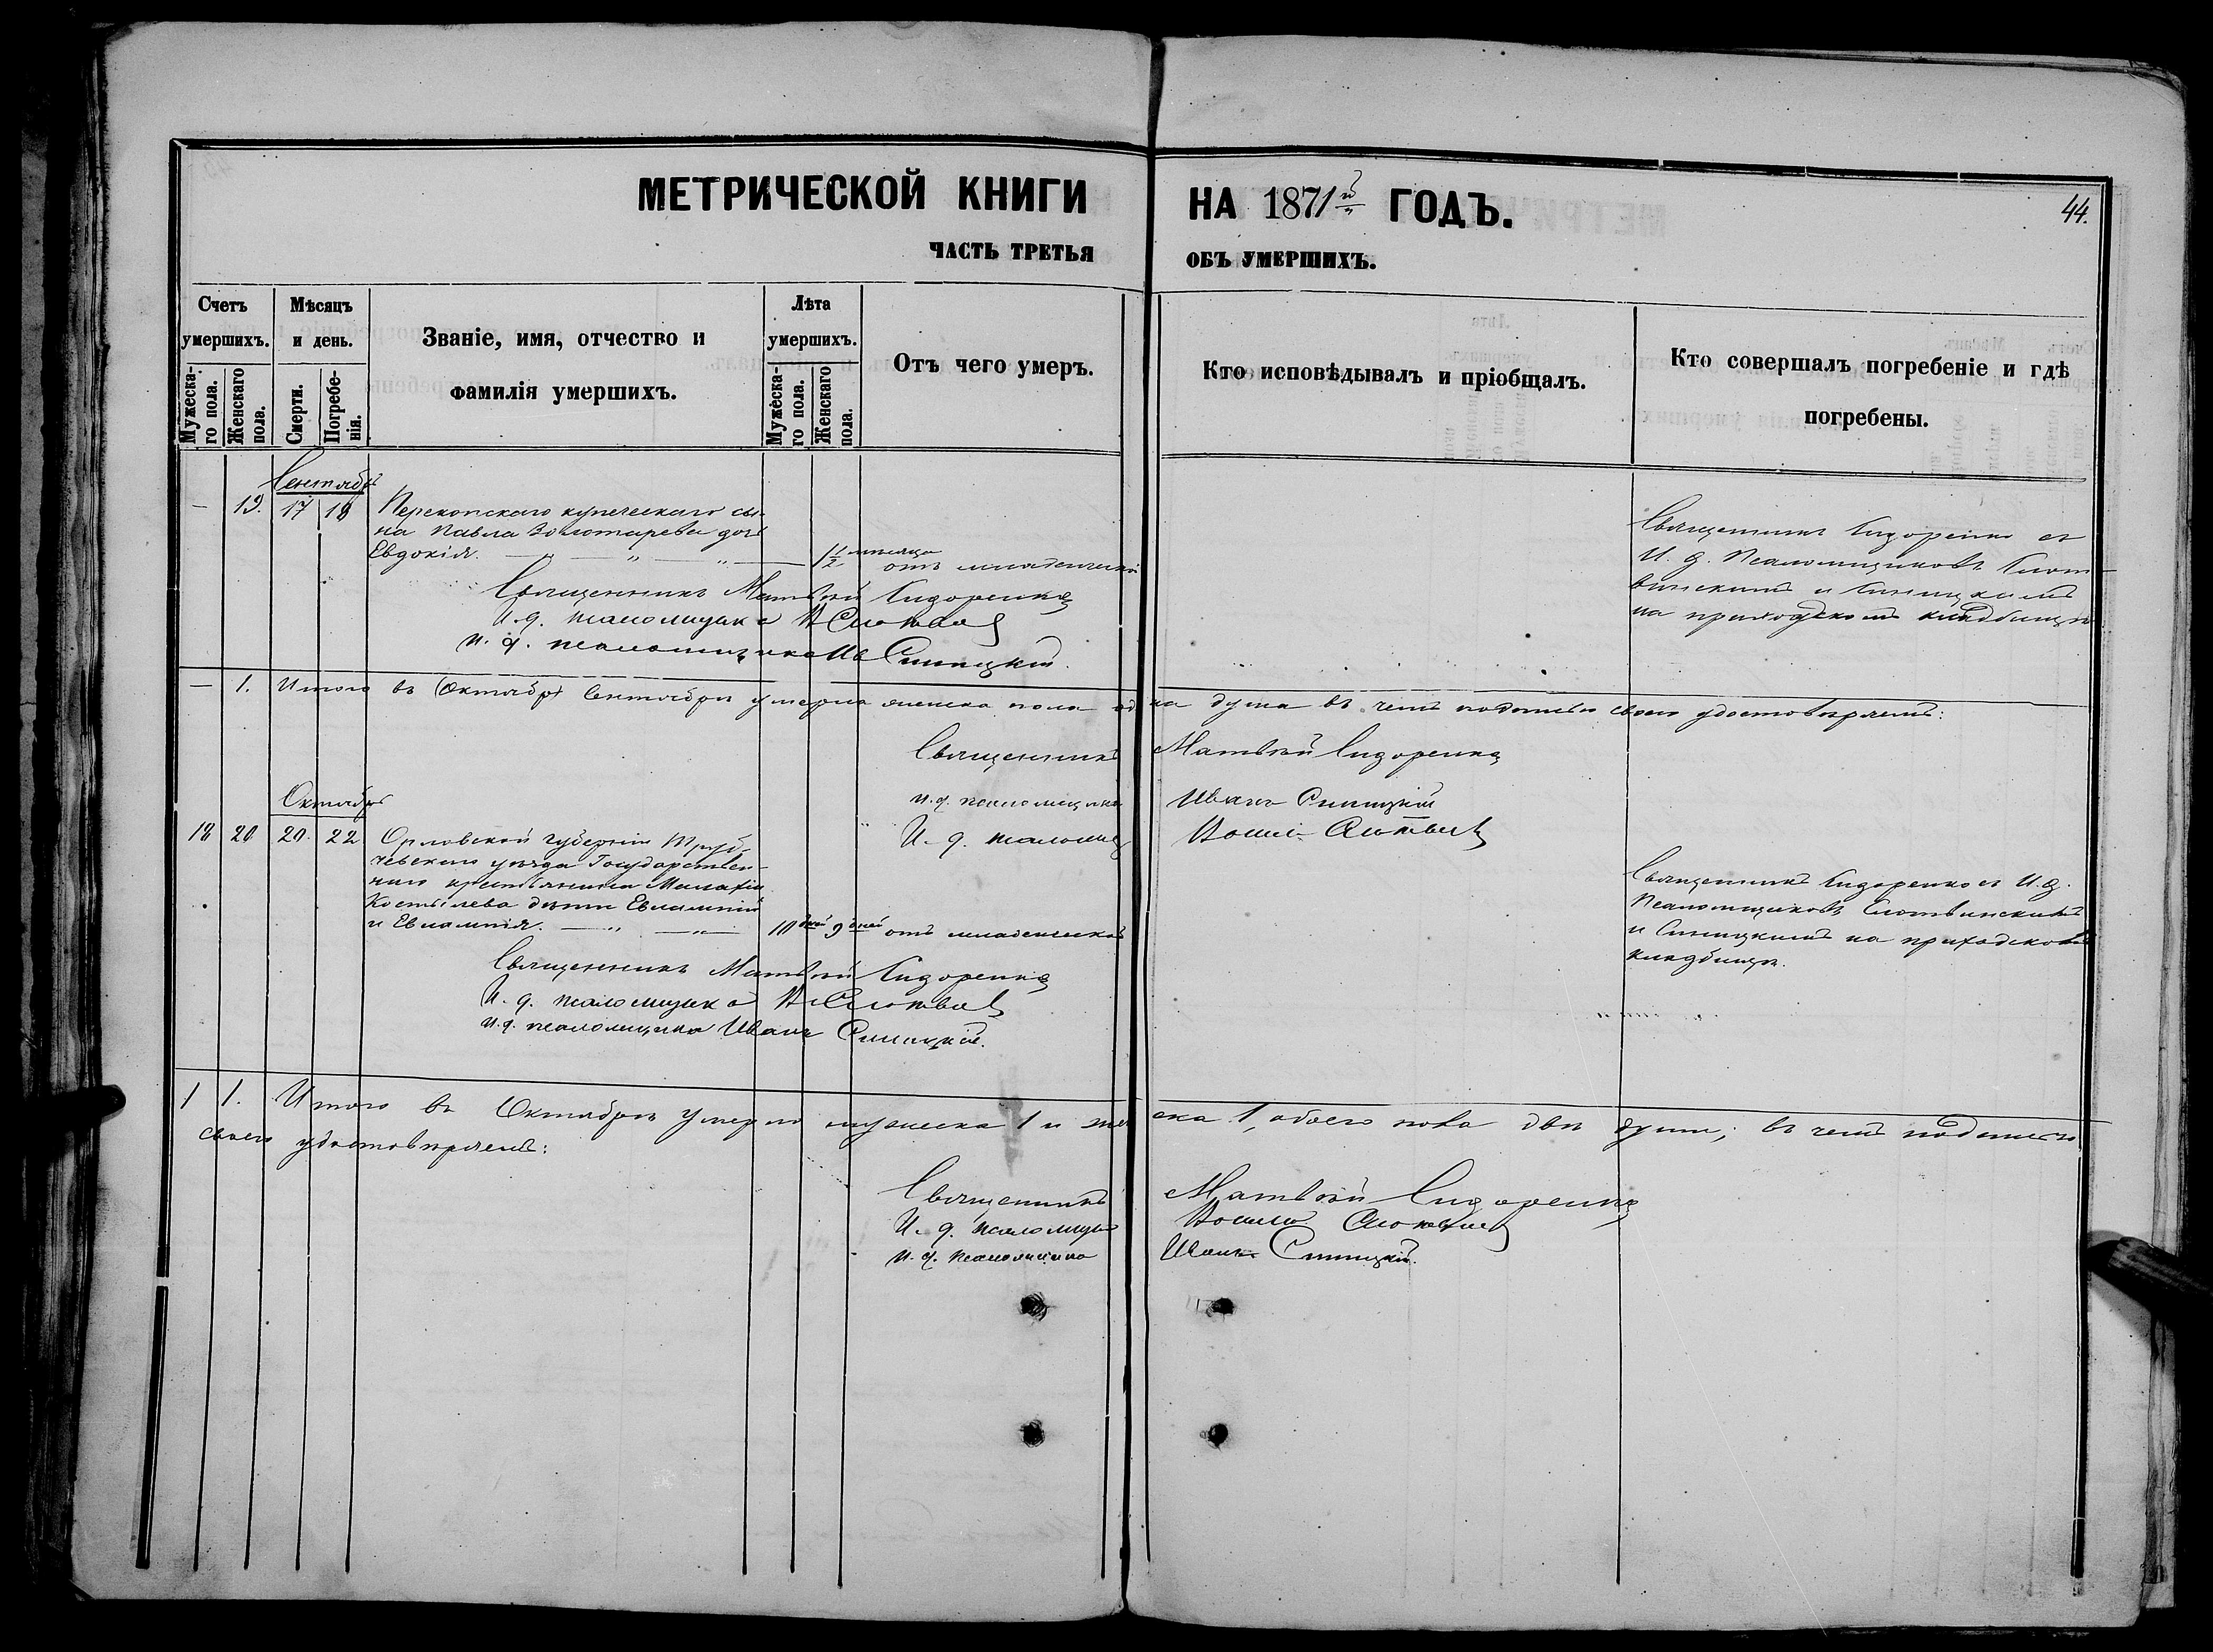 МЕТРИЧЕСКОЙ КНИГИ НА 1871й ГОДЪ.
44.
ЧАСТЬ ТРЕТЬЯ ОБЪ УМЕРШИХЪ.
Счетъ умершихъ.
Мужеска-го пола.
Женскаго пола.
Мѣсяцъ и день.
Смерти.
Погребе-нія.
Званіе, имя, отчество и
фамилія умершихъ.
Лѣта умершихъ.
Мужеска-го пола.
Женскаго пола.
Отъ чего умеръ.
Кто исповѣдывалъ и пріобщалъ.
Кто совершалъ погребеніе и гдѣ
погребены.
Сентябрь
— 19. 17 18 Перекопскаго купеческаго сы-
на Павла Золотарева дочь
Евдокія. — „ — „ — 1½ мѣсяца отъ младенческой
Священникъ Сидоренко съ
И. д. Псаломщиковъ Слот-
винскимъ и Синицкимъ
на приходскомъ кладбищѣ
Священникъ Матвѣй Сидоренко
И. д. псаломщика
И. д. псаломщика Ив Синицкій.
— 1. Итого въ (Октябрѣ) Сентябрѣ умерла женска пола одна душа въ чемъ подписью своею удостовѣряемъ:
Священникъ Матвѣй Сидоренко
И. д. псаломщика Иванъ Синицкій
И. д. псаломщ
Октябрь
18 20 20. 22 Орловской губерніи Труб-
чевскаго уѣзда Государствен-
наго крестьянина Малахіи
Костылева дѣти Евлампій
и Евлампія. — „ — „ — 10 дней 9 дней отъ младенческой
Священникъ Сидоренко съ И. д.
Псаломщиковъ Слотвинскимъ
и Синицкимъ на приходскомъ
кладбищѣ.
Священникъ Матвѣй Сидоренко
И. д. псаломщика
И. д. псаломщика Иванъ Синицкій.
1 1. Итого въ Октябрѣ умерло мужеска 1 и женска 1, обоего пола двѣ души; въ чемъ подписью
своею удостовѣряемъ:
Священникъ Матвѣй Сидоренко
И. д. псаломщ
И. д. псаломщика Иванъ Синицкій.